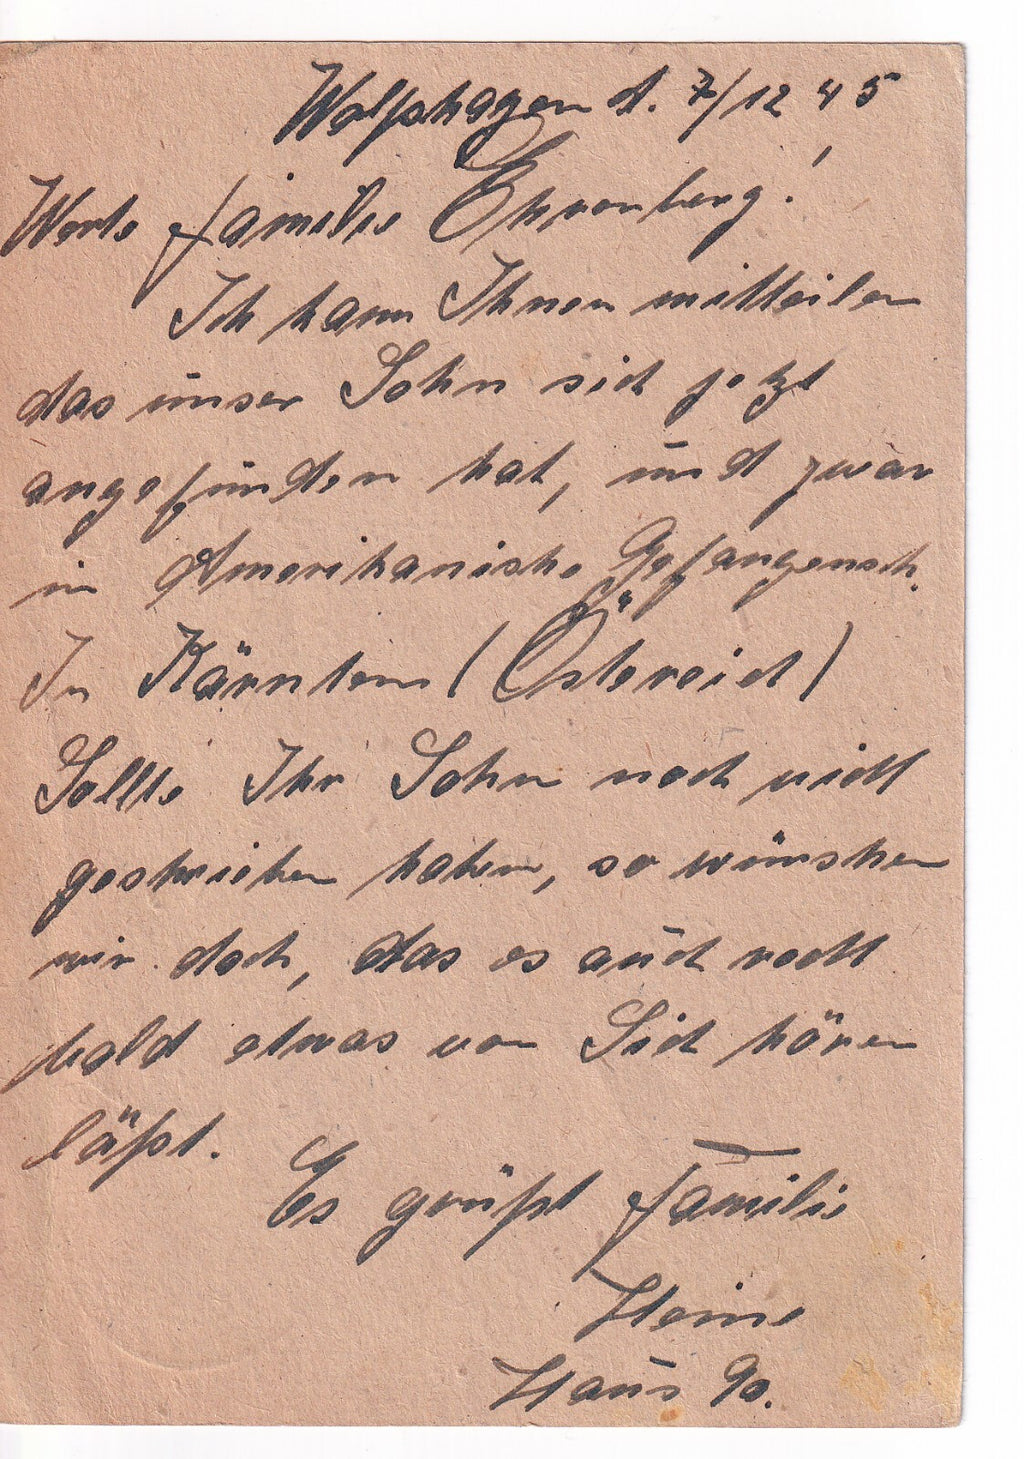 Wolfshagen d. 7/12 45
Werte Familie Ehrenberg!
Ich kann Ihnen mitteilen
das unser Sohn sich jetzt
angefunden hat, und zwar
in Amerikanische Gefangensch.
In Kärnten (Östereich)
Sollte Ihr Sohn noch nicht
geschrieben haben, so wünschen
wir doch, das es auch recht
bald etwas von Sich hören
läßt.
Es grüßt Familie
Heine
Haus